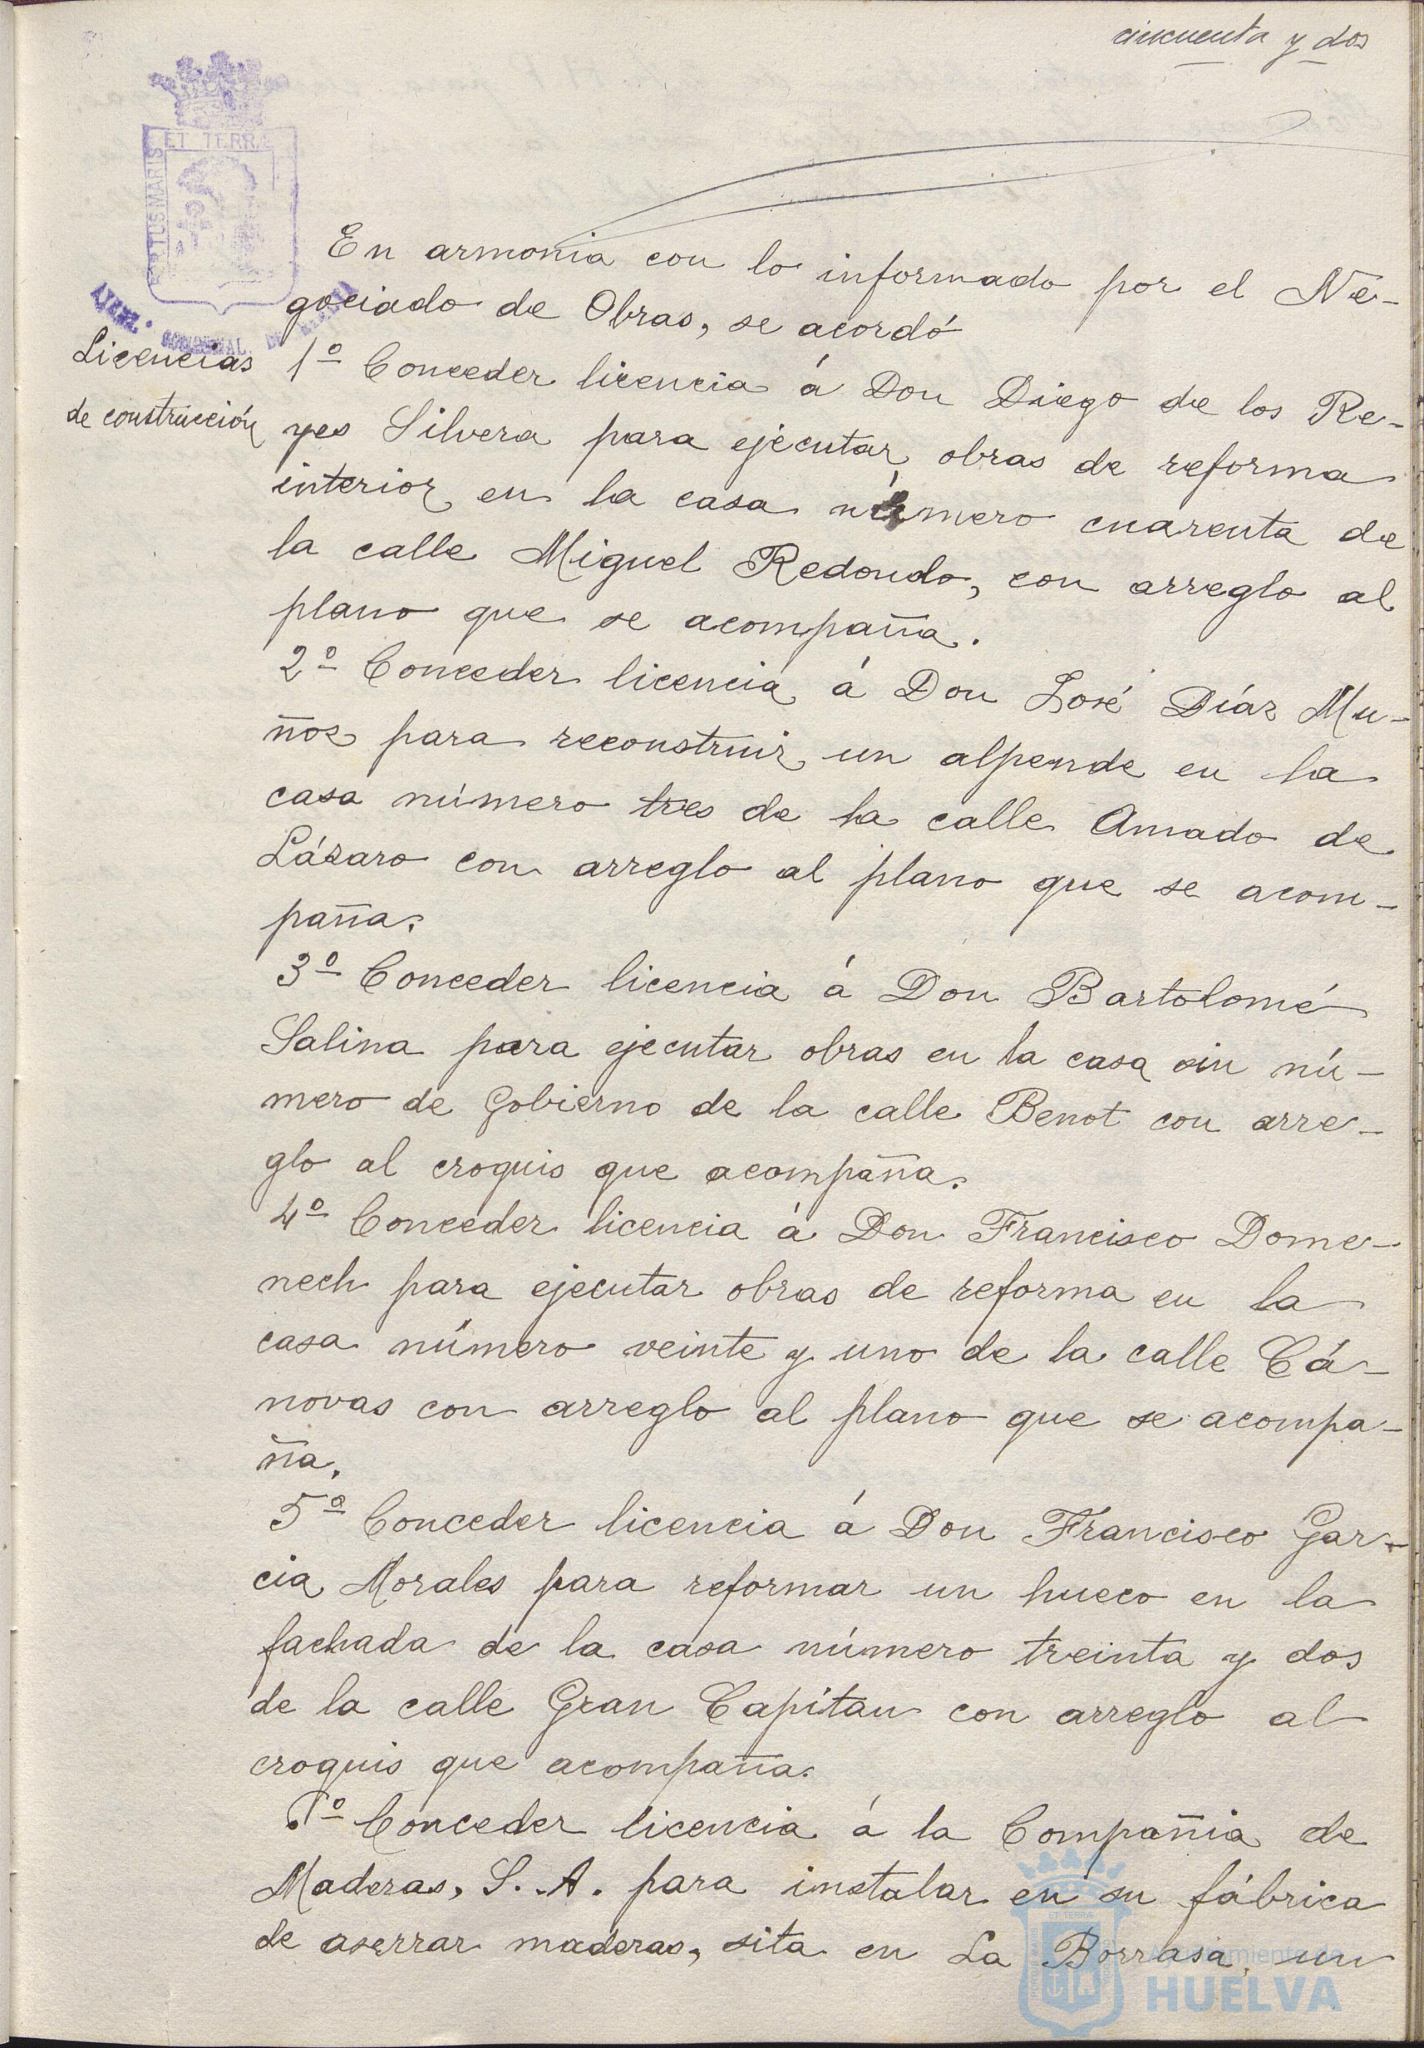 cincuenta y dos
ET TERRÆ
PORTUS MARIS
En armonia con lo informado por el Ne-
gociado de Obras, se acordó
Licencias
de construcción
1º Conceder licencia á Don Diego de los Re-
yes Silvera para ejecutar obras de reforma
interior en la casa número cuarenta de
la calle Miguel Redondo, con arreglo al
plano que se acompaña.
2º Conceder licencia á Don José Díaz Mu-
ñoz para reconstruir un alpende en la
casa número tres de la calle Amado de
Lázaro con arreglo al plano que se acom-
paña.
3º Conceder licencia á Don Bartolomé
Salina para ejecutar obras en la casa sin nú-
mero de Gobierno de la calle Benot con arre-
glo al croquis que acompaña.
4º Conceder licencia á Don Francisco Dome-
nech para ejecutar obras de reforma en la
casa número veinte y uno de la calle Cá-
novas con arreglo al plano que se acompa-
ña.
5º Conceder licencia á Don Francisco Gar-
cia Morales para reformar un hueco en la
fachada de la casa número treinta y dos
de la calle Gran Capitan con arreglo al
croquis que acompaña.
Conceder licencia á la Compañia de
Maderas, S. A. para instalar en su fábrica
de aserrar maderas, sita en La Borrasa, un
Ayuntamiento de
HUELVA